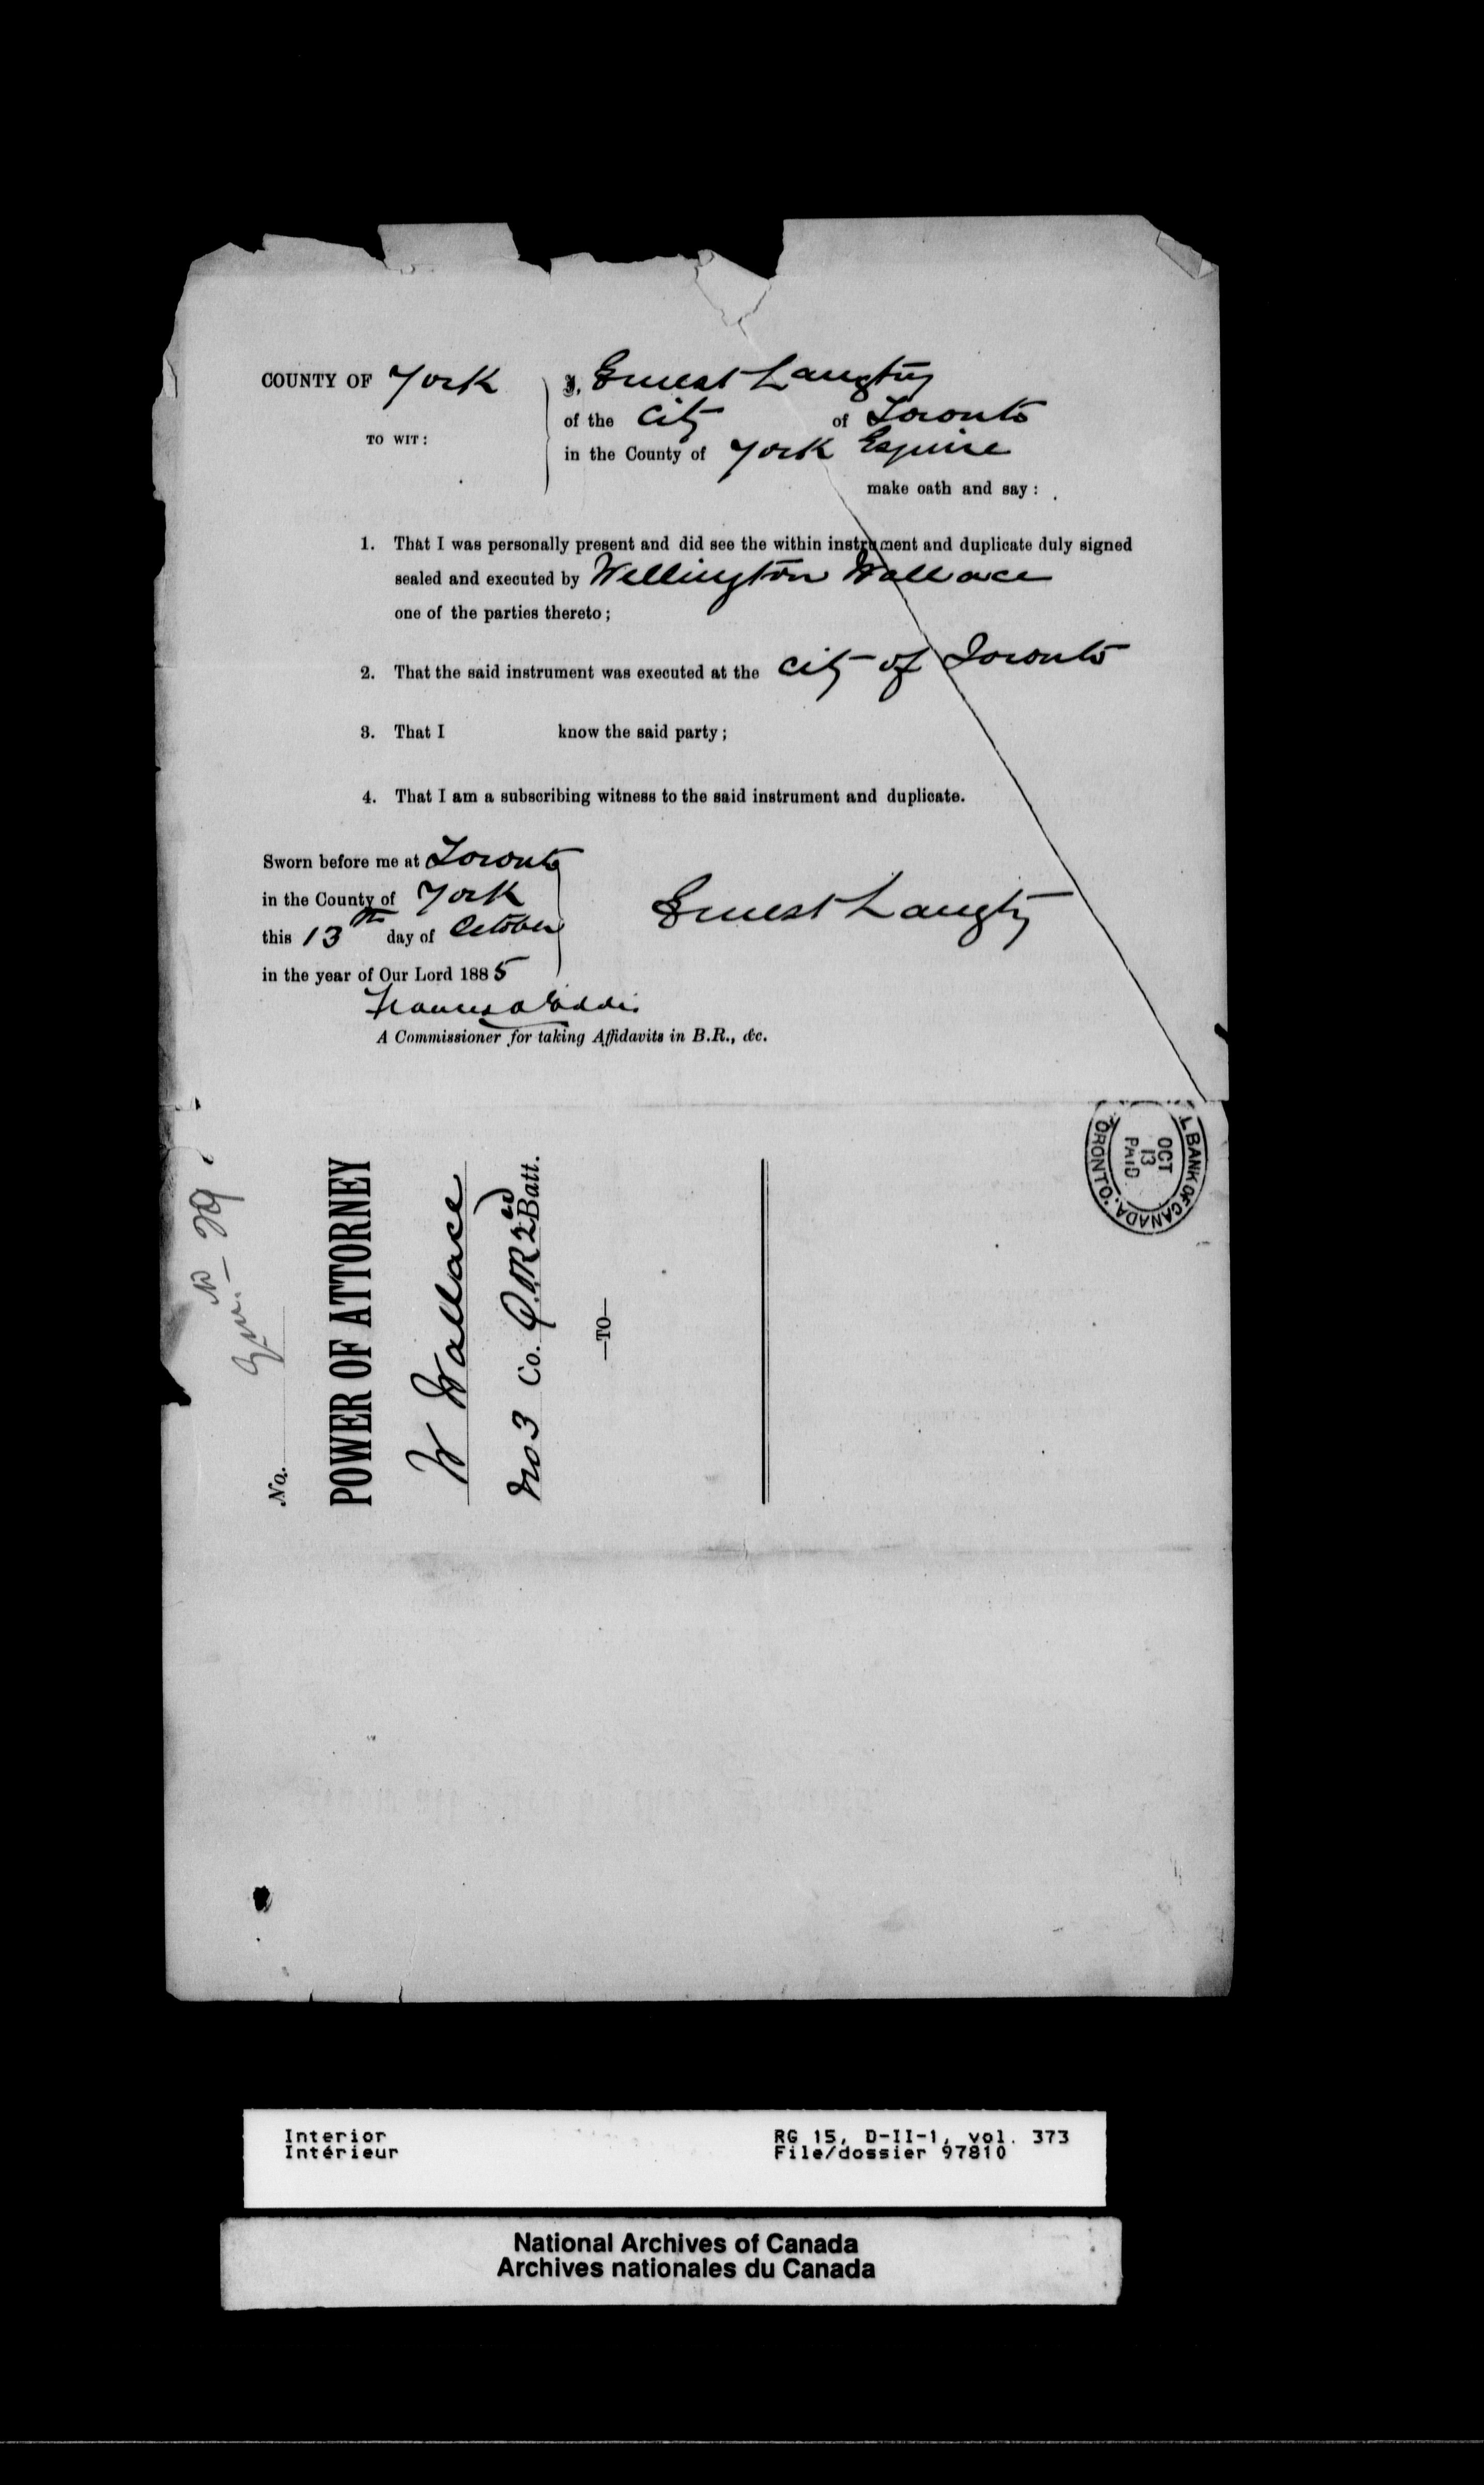 COUNTY OF York
TO WIT:
I, Ernest Langtry
of the City of Toronto
in the County of York Esquire
make oath and say:
1. That I was personally present and did see the within instrument and duplicate duly signed
sealed and executed by Wellington Wallace
one of the parties thereto;
2. That the said instrument was executed at the City of Toronto
3. That I know the said party;
4. That I am a subscribing witness to the said instrument and duplicate.
Sworn before me at Toronto
in the County of York
this 13th day of October
in the year of Our Lord 1885
Ernest Langtry
A Commissioner for taking Affidavits in B.R., &c.
No.
POWER OF ATTORNEY
W Wallace
No 3 Co. Q.O.R 2nd Batt.
—TO—
L BANK OF CANADA,
ORONTO.
OCT
13
PAID
Interior
Intérieur
RG 15, D-II-1, vol. 373
File/dossier 97810
National Archives of Canada
Archives nationales du Canada